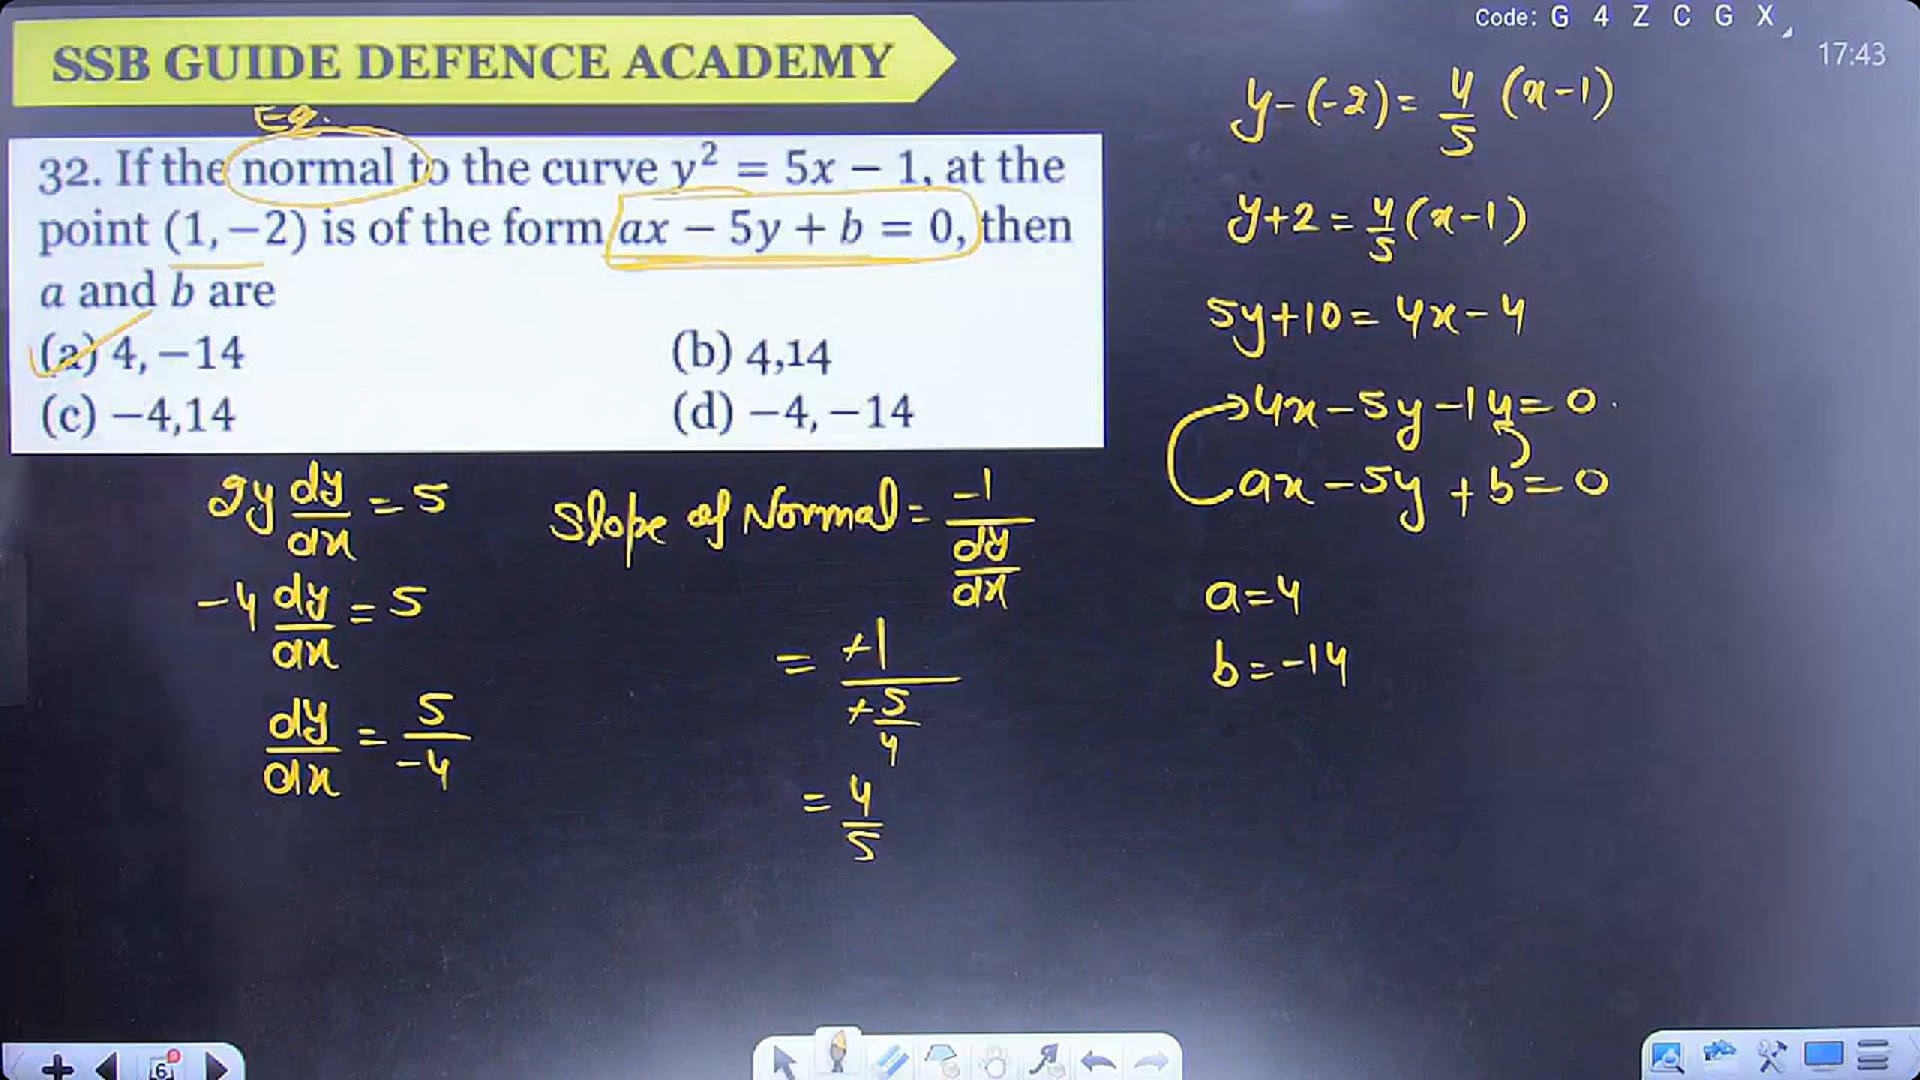 Code: G 4 Z C G X
17:43
SSB GUIDE DEFENCE ACADEMY
Eq.
32. If the normal to the curve y² = 5x − 1, at the
point (1, −2) is of the form ax − 5y + b = 0, then
a and b are
(a) 4, −14
(b) 4,14
(c) −4,14
(d) −4, −14
2y dy/dx = 5
-4 dy/dx = 5
dy/dx = 5/-4
Slope of Normal = -1/(dy/dx)
= +1/(+5/4)
= 4/5
y-(-2) = 4/5 (x-1)
y+2 = 4/5 (x-1)
5y+10 = 4x-4
4x-5y-14=0
ax-5y+b=0
a=4
b=-14
6